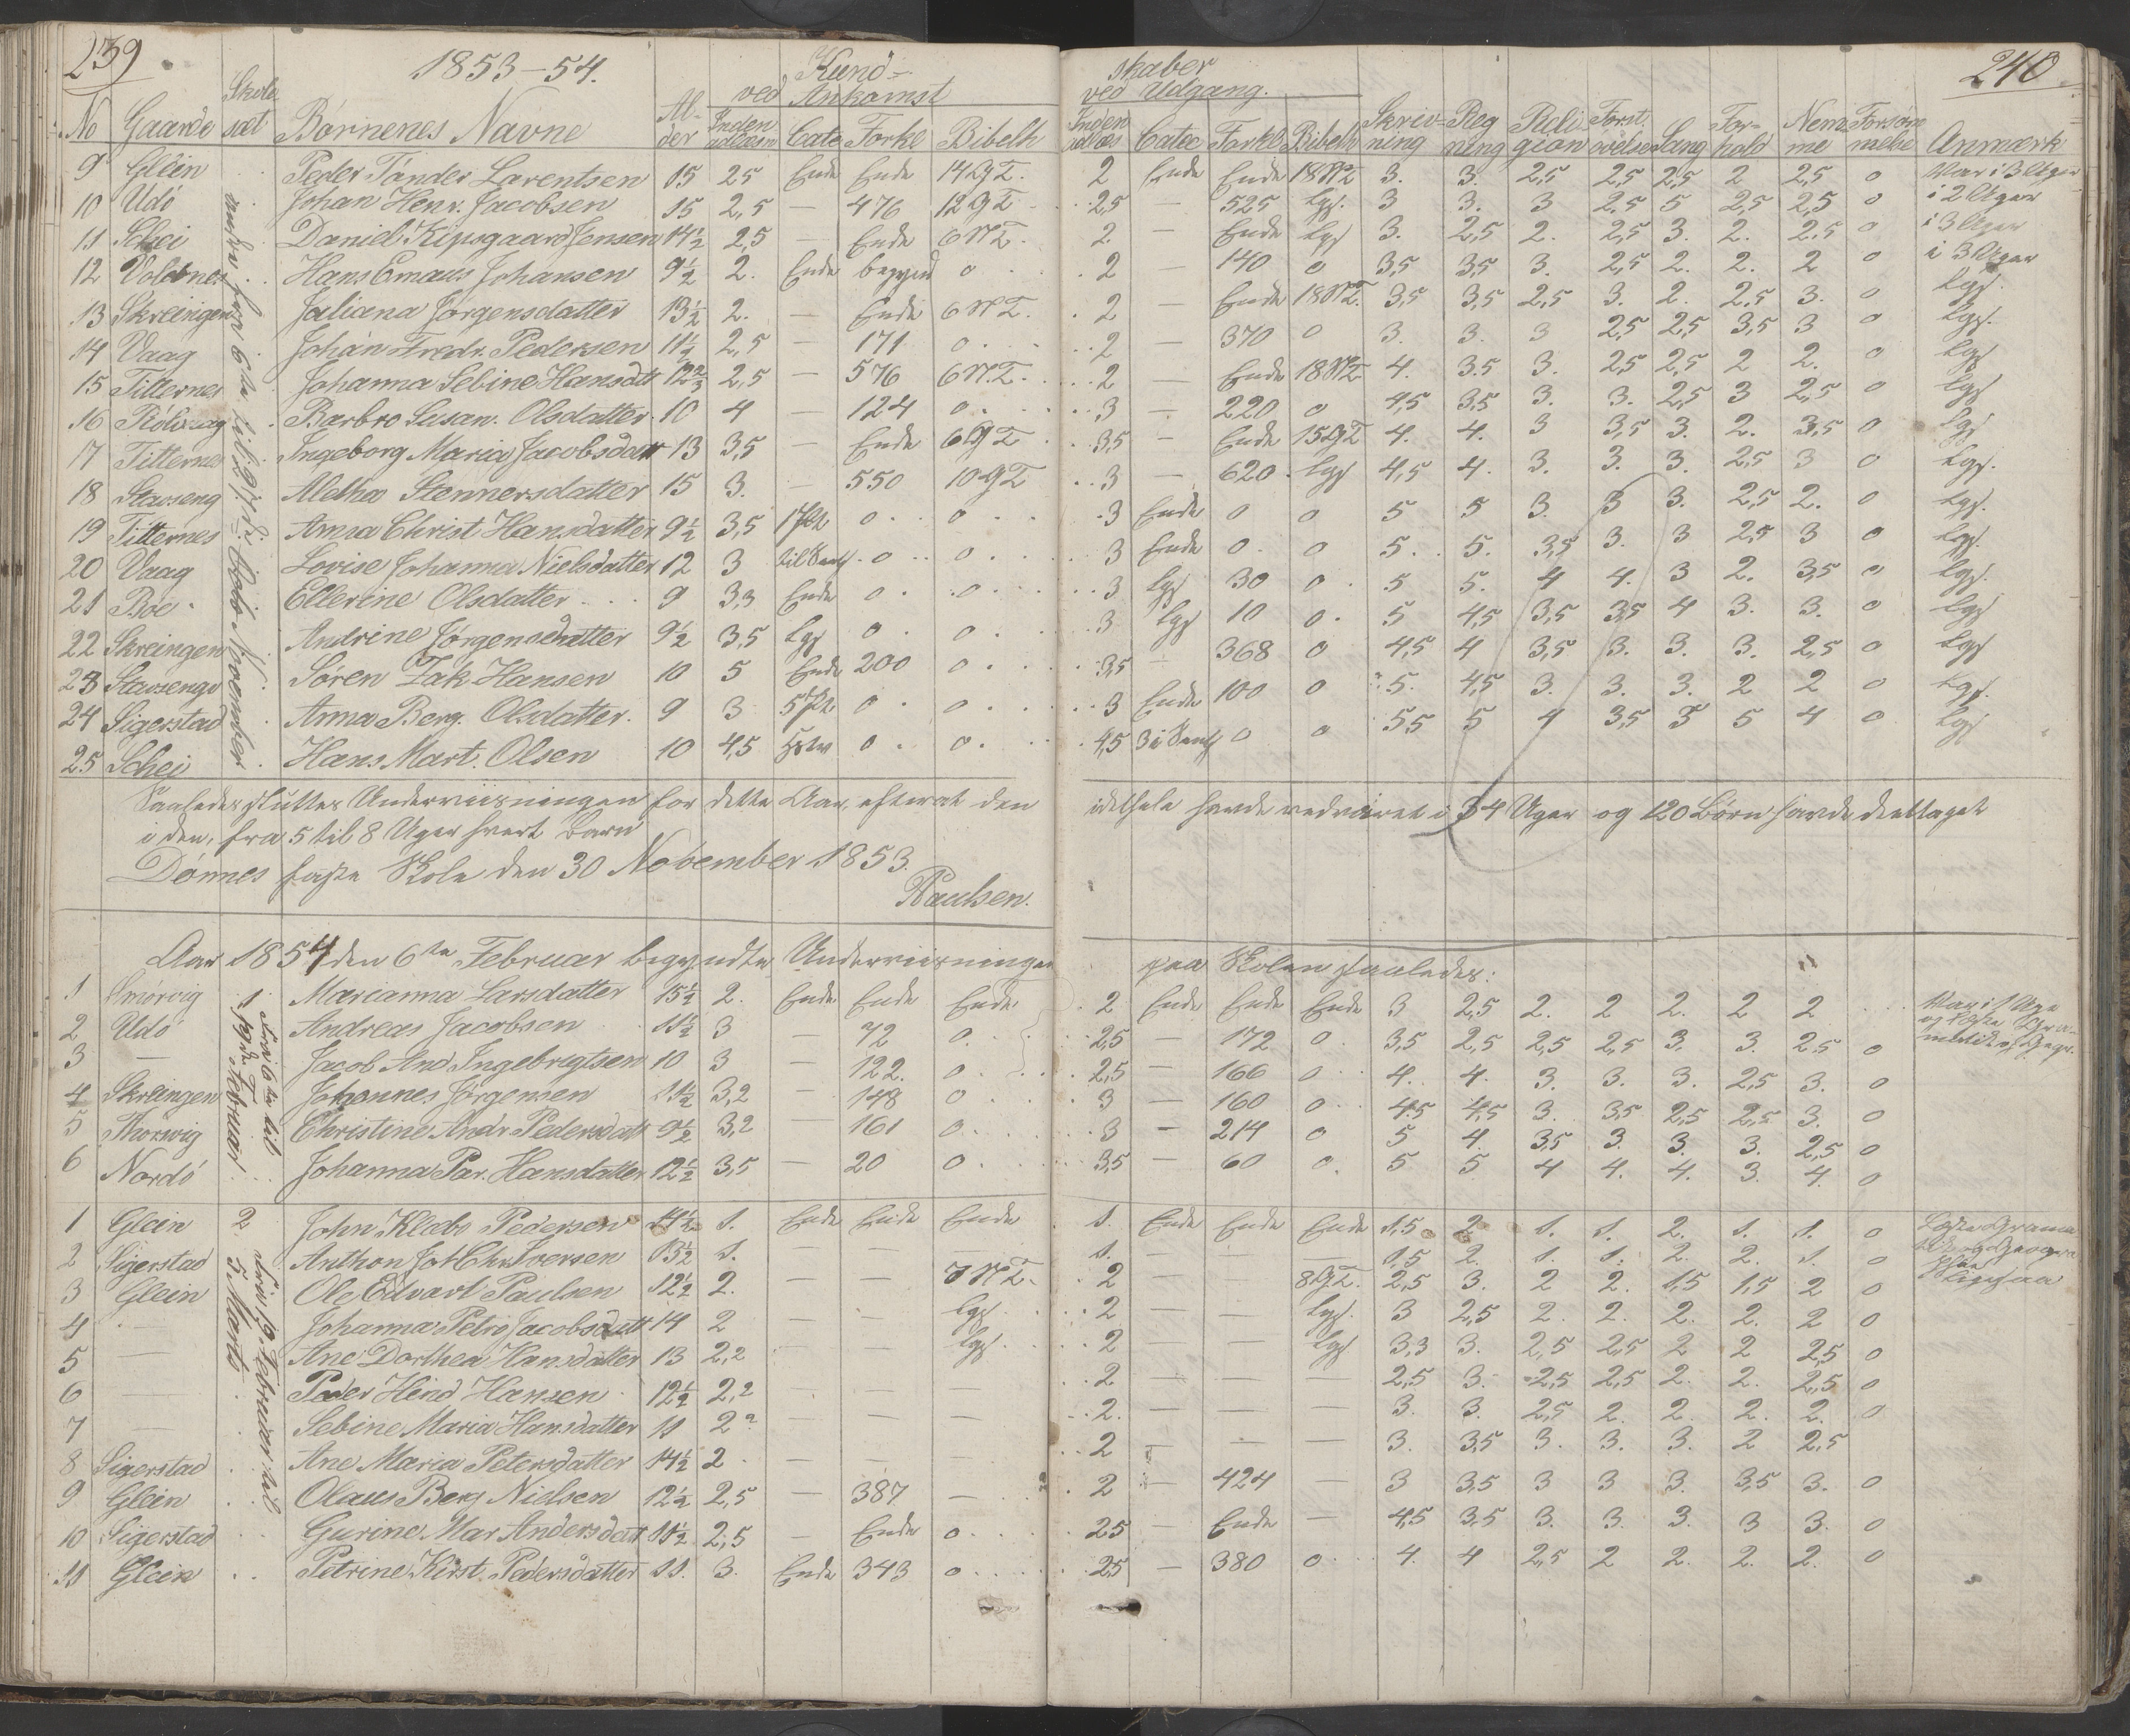 239
1853-54.
Kund-
ved Ankomst
No Gaarde Skole sæt Børnenes Navne Al-der Inden adlæsn Cate Forkl Bibelh
9 Glein Peder Tånder Larentsen 15 2,5 Ende Ende 14 G T.
10 Udö Johan Henr. Jacobsen 15 2,5 — 476 12 G T
11 Schei Daniel Kipsgaard Jensen 14½ 2,5 — Ende 6 N T.
12 Hans Emaus Johansen 9½ 2. Ende begynd 0
13 Skreingen Juliana Jørgensdatter 13½ 2. — Ende 6 N T.
14 Vaag Johan Fredr. Pedersen 11½ 2,5 — 171 0
15 Titternes Johanna Sebine Hansdtt 12⅔ 2,5 — 576 6 N.T.
16 Barbro Susan. Olsdatter 10 4 — 124 0
17 Titternes Ingeborg Maria Jacobsdatt 13 3,5 — Ende 6 G T
18 Stavseng Aletha Stennersdatter 15 3. — 550 10 G T
19 Titternes Anna Christ Hansdatter 9½ 3,5 0 0
20 Vaag Lovise Johanna Nielsdatter 12 3 0 0
21 Böe Ellerine Olsdatter 9 3,3 Ende 0 0
22 Skreingen Andrine Jørgensdatter 9½ 3,5 0 0
23 Stavsenge Søren Zak Hansen 10 5 Ende 200 0
24 Sigerstad Anna Berg. Olsdatter. 9 3 0 0
25 Schei Hans Mart. Olsen 10 4,5 0 0
Saaledes sluttes Underviisningen for dette Aar, efterat den
i den, fra 5 til 8 Uger hvert Barn
Dönnes faste Skole den 30 November 1853.
Paulsen.
Aar 1854 den 6te Februar begyndte Underviisningen
1 Marianna Larsdatter 15½ 2. Ende Ende Ende
2 Udö Andreas Jacobsen 11½ 3 — 72 0
3 — Jacob And Ingebrigtsen 10 3 — 122. 0
4 Skreingen Johannes Jørgensen 11½ 3,2 — 148 0
5 Christine Andr Pedersdatt 9½ 3,2 — 161 0
6 Nordö Johanna Par. Hansdatter 12½ 3,5 — 20 0
1 Fra 6te til 19de Februar
1 Glein John Klæbo Pedersen 14½ 1. Ende Ende Ende
2 Sigerstad Anthon Joh Chr Iversen 13½ 1. — — —
3 Glein Ole Edvart Paulsen 12½ 2. — — 7 N T.
4 — Johanna Petro Jacobsdatt 14 2 — —
5 — Ane Dorthea Hansdatter 13 2,2 — —
6 — Peder Hind Hansen 12½ 2,2 — — —
7 — Sebine Maria Hansdatter 11 2 2 — — —
8 Sigerstad Ane Maria Petersdatter 14½ 2 — — —
9 Glein Olaus Berg Nielsen 12½ 2,5 — 387 —
10 Sigerstad Gurine Mar Andersdatt 11½ 2,5 — Ende 0
11 Glein Petrine Kirst. Pedersdatter 11. 3. Ende 343 0
2 Fra 19 Februar til 5 Marts
240
skaber
ved Udgang.
Inden adlæs Catec Forkl Bibelh Skriv-ning Reg ning Reli gion Forst. øvelse Sang For-hold Nem me Forsöm melse Anmærk
2 Ende Ende 18 N T 3. 3. 2,5 2,5 2,5 2 2,5 0 Var i 3 Uger
2,5 — 525 3 3. 3 2,5 5 2,5 2,5 0 i 2 Uger
2 — Ende 3. 2,5 2. 2,5 3. 2. 2.5 0 i 3 Uger
2 — 140 0 3,5 3,5 3. 2,5 2. 2. 2 0 i 3 Uger
2 — Ende 18 N T. 3,5 3,5 2,5 3. 2. 2,5 3. 0
2 — 370 0 3. 3. 3 2,5 2,5 3,5 3 0
2 — Ende 18 N T 4. 3.5 3. 2,5 2,5 2 2. 0
3 — 220 0 4,5 3,5 3. 3. 2,5 3 2,5 0
3,5 — Ende 15 G T 4. 4. 3 3,5 3. 2. 3,5 0
3 — 620 4,5 4. 3. 3. 3. 2,5 3 0
3 Ende 0 0 5 5 3. 3 3. 2,5 2. 0
3 Ende 0 0 5. 5. 3,5 3. 3 2,5 3 0
3 30 0 5 5. 4 4. 3 2. 3,5 0
3 10 0 5 4,5 3,5 3,5 4 3. 3. 0
3,5 — 368 0 4,5 4 3,5 3. 3. 3. 2,5 0
3 Ende 100 0 5. 4,5 3. 3. 3. 2 2 0
4,5 0 0 5,5 5 4 3,5 3 5 4 0
idethele havde vedvaret i 34 Uger og 120 Børn havde deeltaget
paa Skolen saaledes:
2 Ende Ende Ende 3 2,5 2. 2 2. 2 2
2,5 — 172 0 3,5 2,5 2,5 2,5 3. 3. 2,5 0
2,5 — 166 0 4. 4. 3. 3. 3. 2,5 3. 0
3 — 160 0 4.5 4,5 3. 3,5 2,5 2,5 3. 0
3 — 214 0 5 4. 3,5 3. 3. 3. 2,5 0
3,5 — 60 0. 5 5. 4 4. 4. 3. 4. 0
1. Ende Ende Ende 1,5 2 1. 1. 2. 1. 1. 0
1. — — — 1,5 2. 1. 1. 2. 2. 1. 0
2 — — 8 G T. 2,5 3. 2 2. 1,5 1,5 2 0
2 — — 3 2,5 2. 2. 2. 2. 2 0
2 — — 3,3 3. 2,5 2,5 2 2 2,5 0
2 — — — 2,5 3. 2,5 2,5 2. 2. 2,5 0
2. — — — 3. 3. 2,5 2. 2. 2. 2. 0
2 — — — 3. 3,5 3. 3. 3. 2 2,5
2 — 424 — 3 3,5 3 3 3. 3,5 3. 0
2,5 — Ende — 4,5 3,5 3. 3. 3. 3 3. 0
2,5 — 380 0 4. 4 2,5 2 2. 2. 2. 0